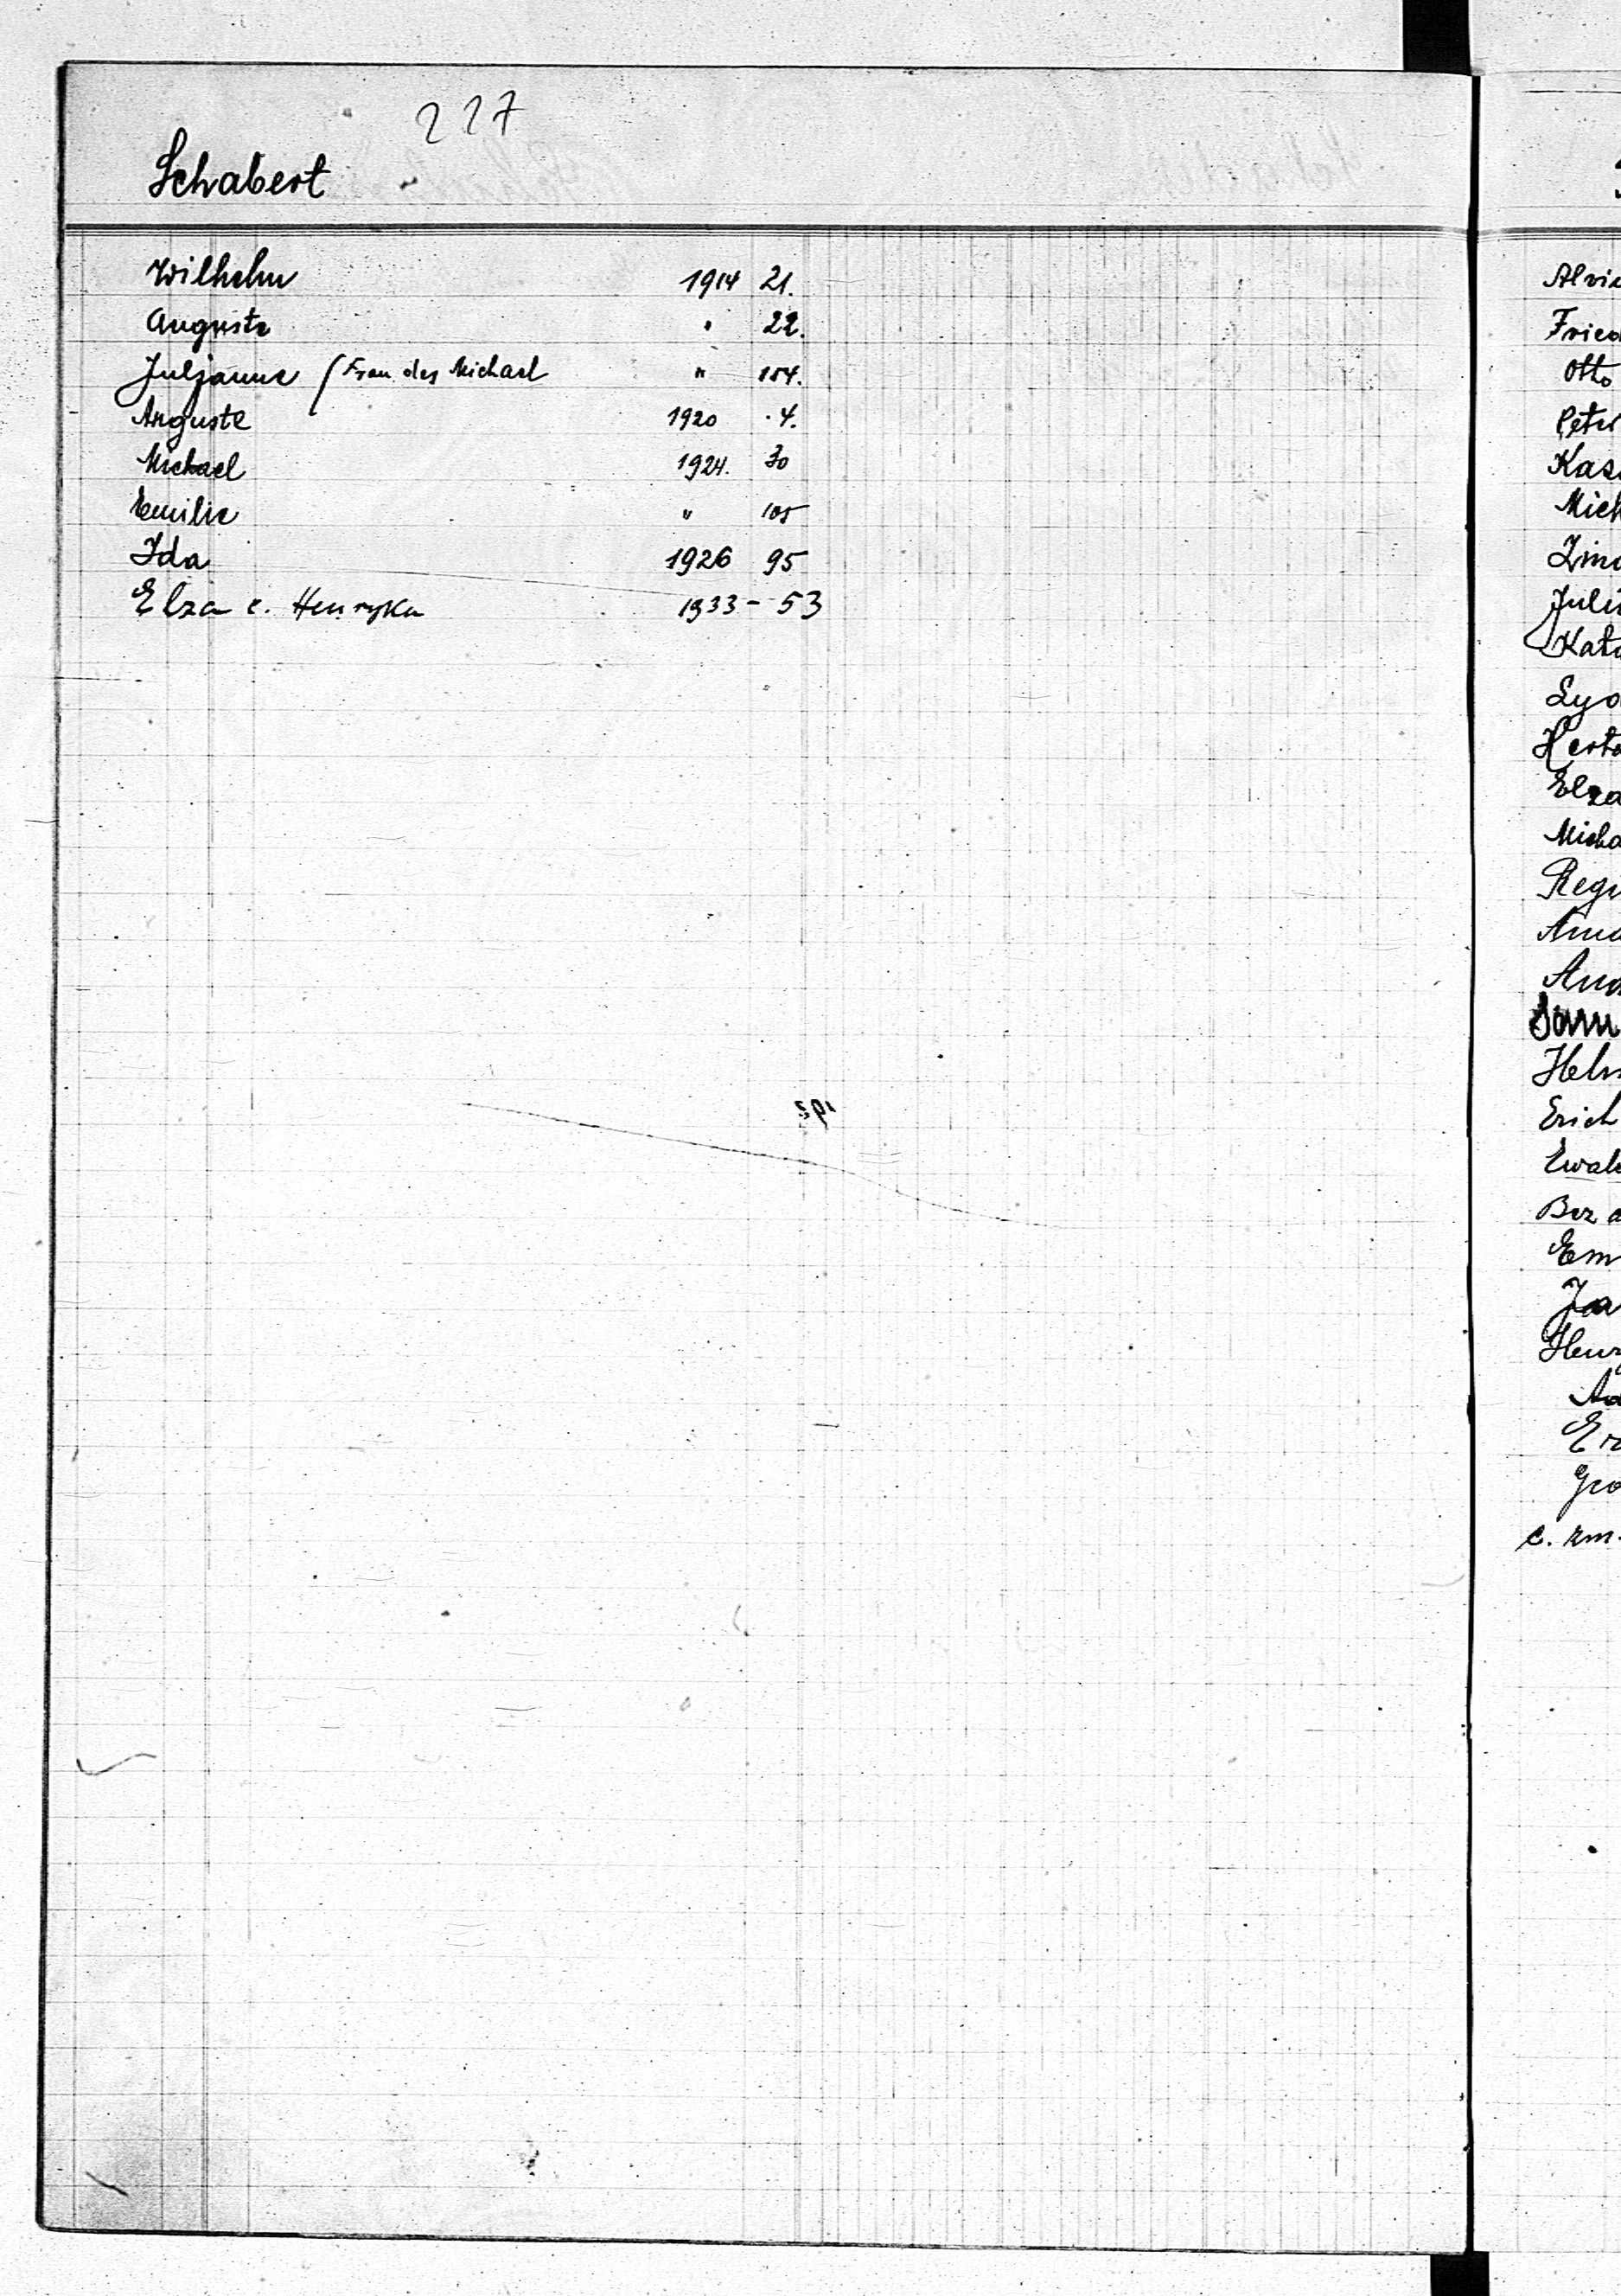 227
Schabert
Wilhelm 1914 21.
Auguste " 22.
Juljanne (Frau des Michael " 154.
Auguste 1920 4.
Michael 1924. 30
Emilie " 105
Ida 1926 95
Elza c. Henryka 1933 - 53
Friec
Otto
Peter
Kas
Mich
Juli
Kat
Lyd
Herta
Elza
Micha
Regi
Hel
Erich
Ewal
Bez
Em
Ja
Henr
Ad
c. zm.